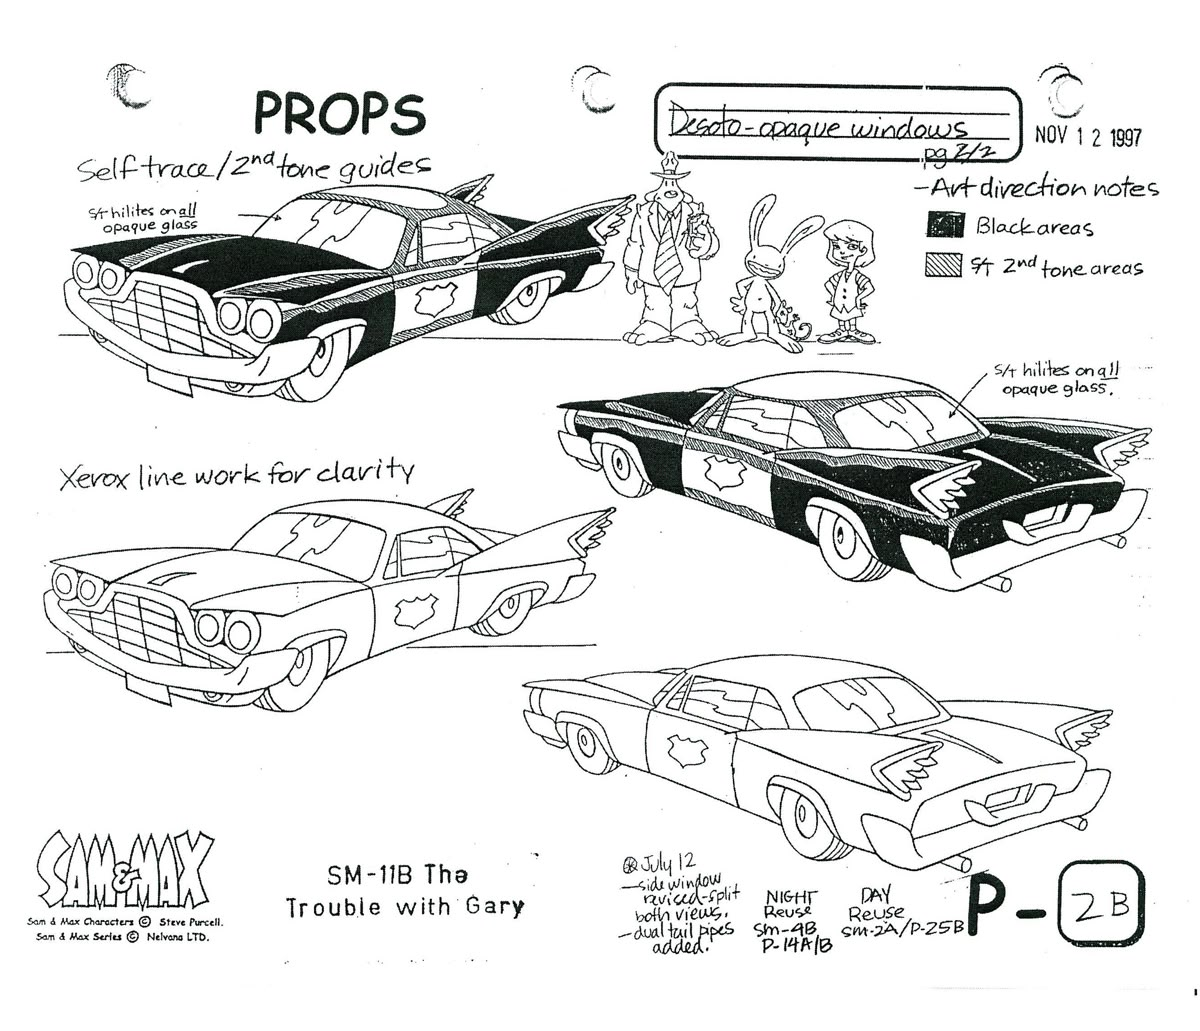 PROPS
Desoto-opaque windows
pg 2/2
NOV 12 1997
Self trace/2nd tone guides
S/t hilites on all
opaque glass
-Art direction notes
Black areas
S/T 2nd tone areas
S/t hilites on all
opaque glass.
Xerox line work for clarity
SAM & MAX
Sam & Max Characters © Steve Purcell.
Sam & Max Series © Nelvana LTD.
SM-11B The
Trouble with Gary
⊛ July 12
-side window
revised-split
both views.
-dual tail pipes
added.
NIGHT
Reuse
Sm-4B
P-14A/B
DAY
Reuse
Sm-2A/P-25B
P-2B